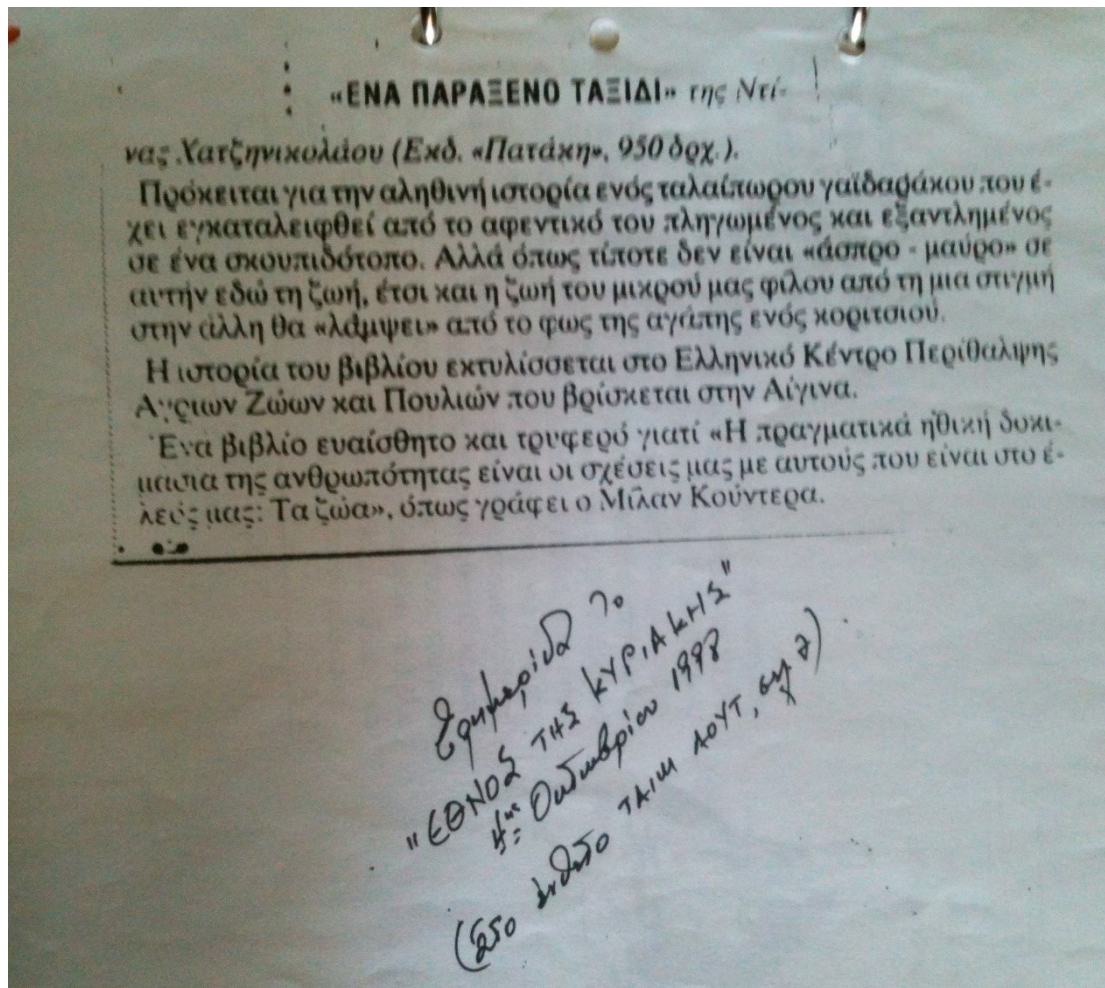 «ΕΝΑ ΠΑΡΑΞΕΝΟ ΤΑΞΙΔΙ» της Ντί-
νας Χατζηνικολάου (Εκδ. «Πατάκη», 950 δρχ.).
Πρόκειται για την αληθινή ιστορία ενός ταλαίπωρου γαϊδαράκου που έ-
χει εγκαταλειφθεί από το αφεντικό του πληγωμένος και εξαντλημένος
σε ένα σκουπιδότοπο. Αλλά όπως τίποτε δεν είναι «άσπρο - μαύρο» σε
αυτήν εδώ τη ζωή, έτσι και η ζωή του μικρού μας φίλου από τη μια στιγμή
στην άλλη θα «λάμψει» από το φως της αγάπης ενός κοριτσιού.
Η ιστορία του βιβλίου εκτυλίσσεται στο Ελληνικό Κέντρο Περίθαλψης
Αγριων Ζώων και Πουλιών που βρίσκεται στην Αίγινα.
Ένα βιβλίο ευαίσθητο και τρυφερό γιατί «Η πραγματικά ηθική δοκι-
μασια της ανθρωπότητας είναι οι σχέσεις μας με αυτούς που είναι στο έ-
λεός μας: Τα ζώα», όπως γράφει ο Μίλαν Κούντερα.
Εφημερίδα το
"ΕΘΝΟΣ ΤΗΣ ΚΥΡΙΑΚΗΣ"
4ης Οκτωβρίου 1998
(Στο ένθετο ΤΑΙΜ ΑΟΥΤ, σελ 2)